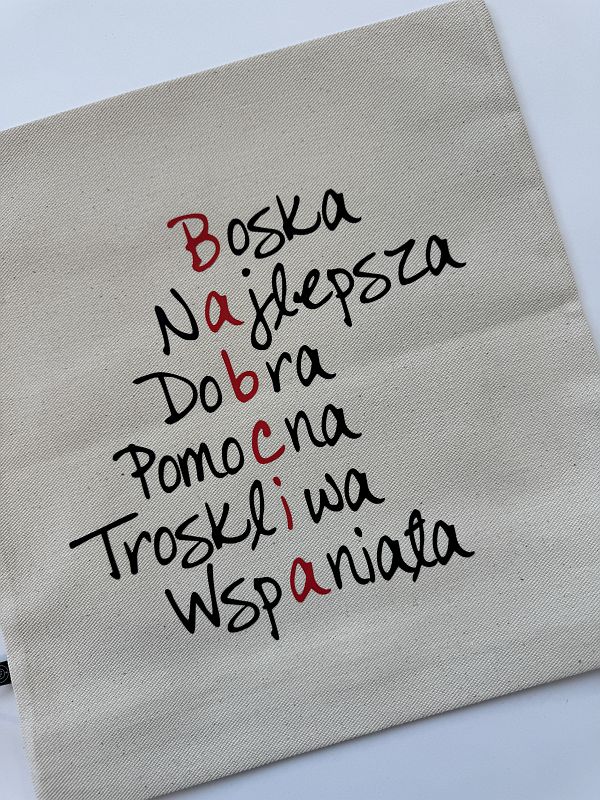 Boska
Najlepsza
Dobra
Pomocna
Troskliwa
Wspaniała